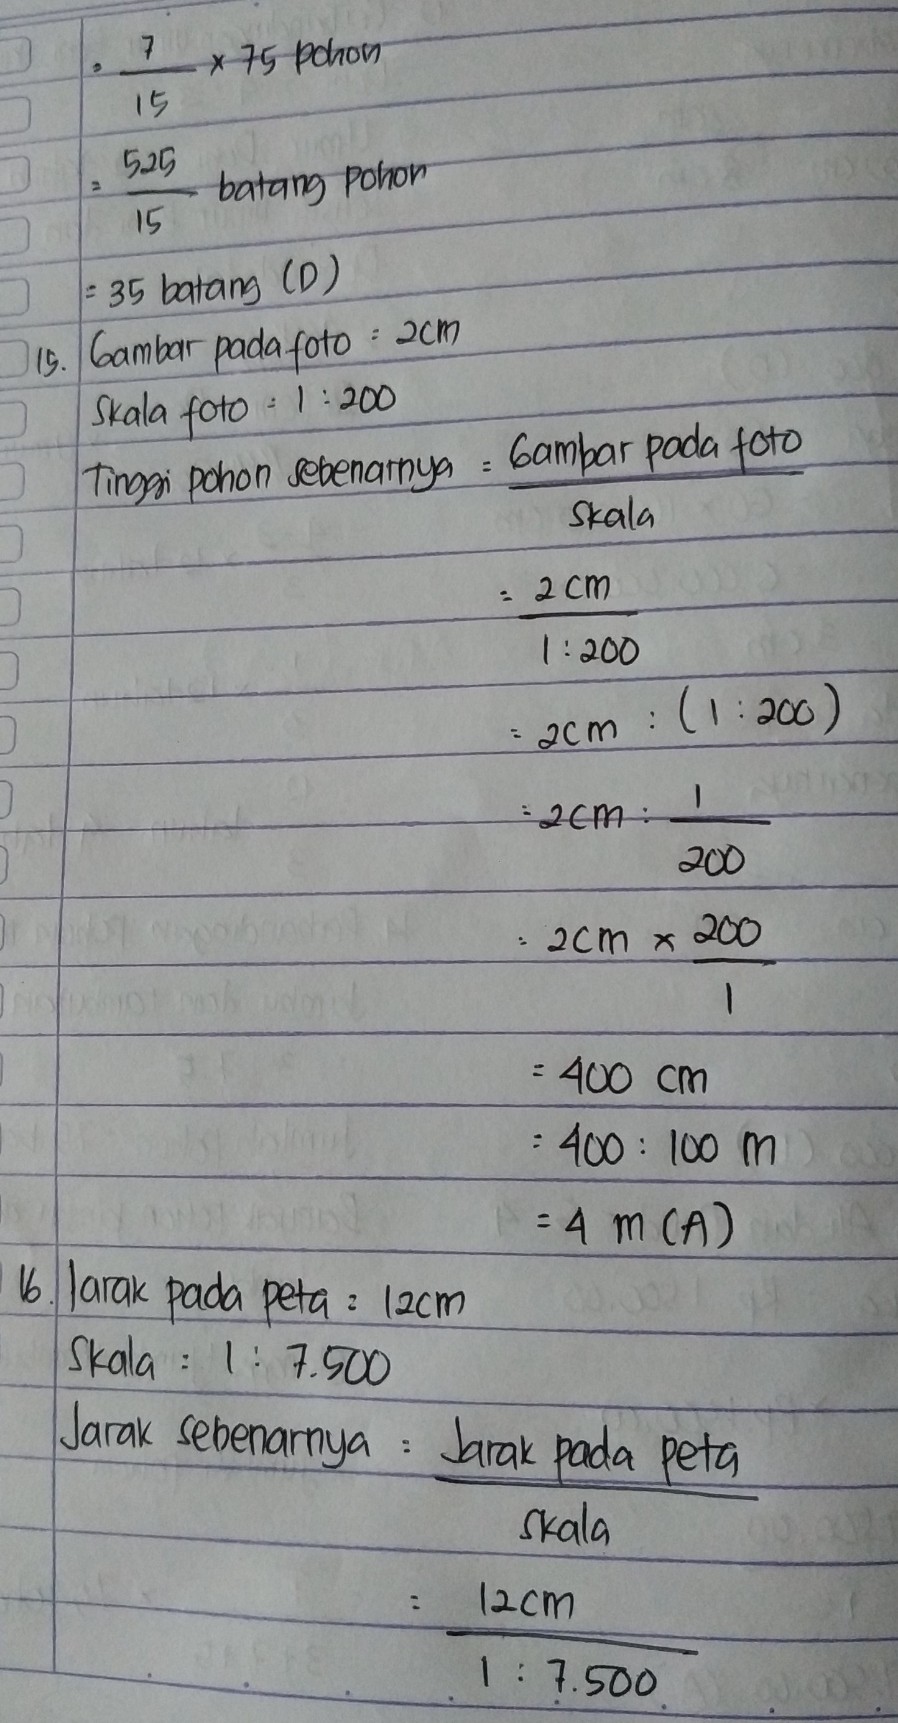 = 7/15 × 75 pohon
= 525/15 batang pohon
= 35 batang (D)
15. Gambar pada foto = 2cm
Skala foto = 1 : 200
Tinggi pohon sebenarnya = Gambar pada foto / Skala
= 2cm / 1 : 200
= 2cm : (1 : 200)
= 2cm : 1/200
= 2cm × 200/1
= 400 cm
= 400 : 100 m
= 4 m (A)
16. Jarak pada peta = 12cm
Skala = 1 : 7.500
Jarak sebenarnya = Jarak pada peta / Skala
= 12cm / 1 : 7.500